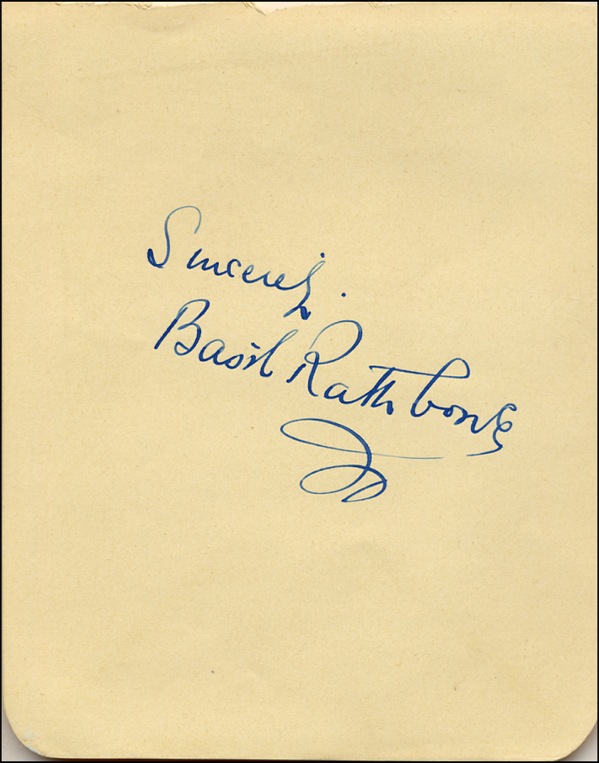 Sincerely.
Basil Rathbone